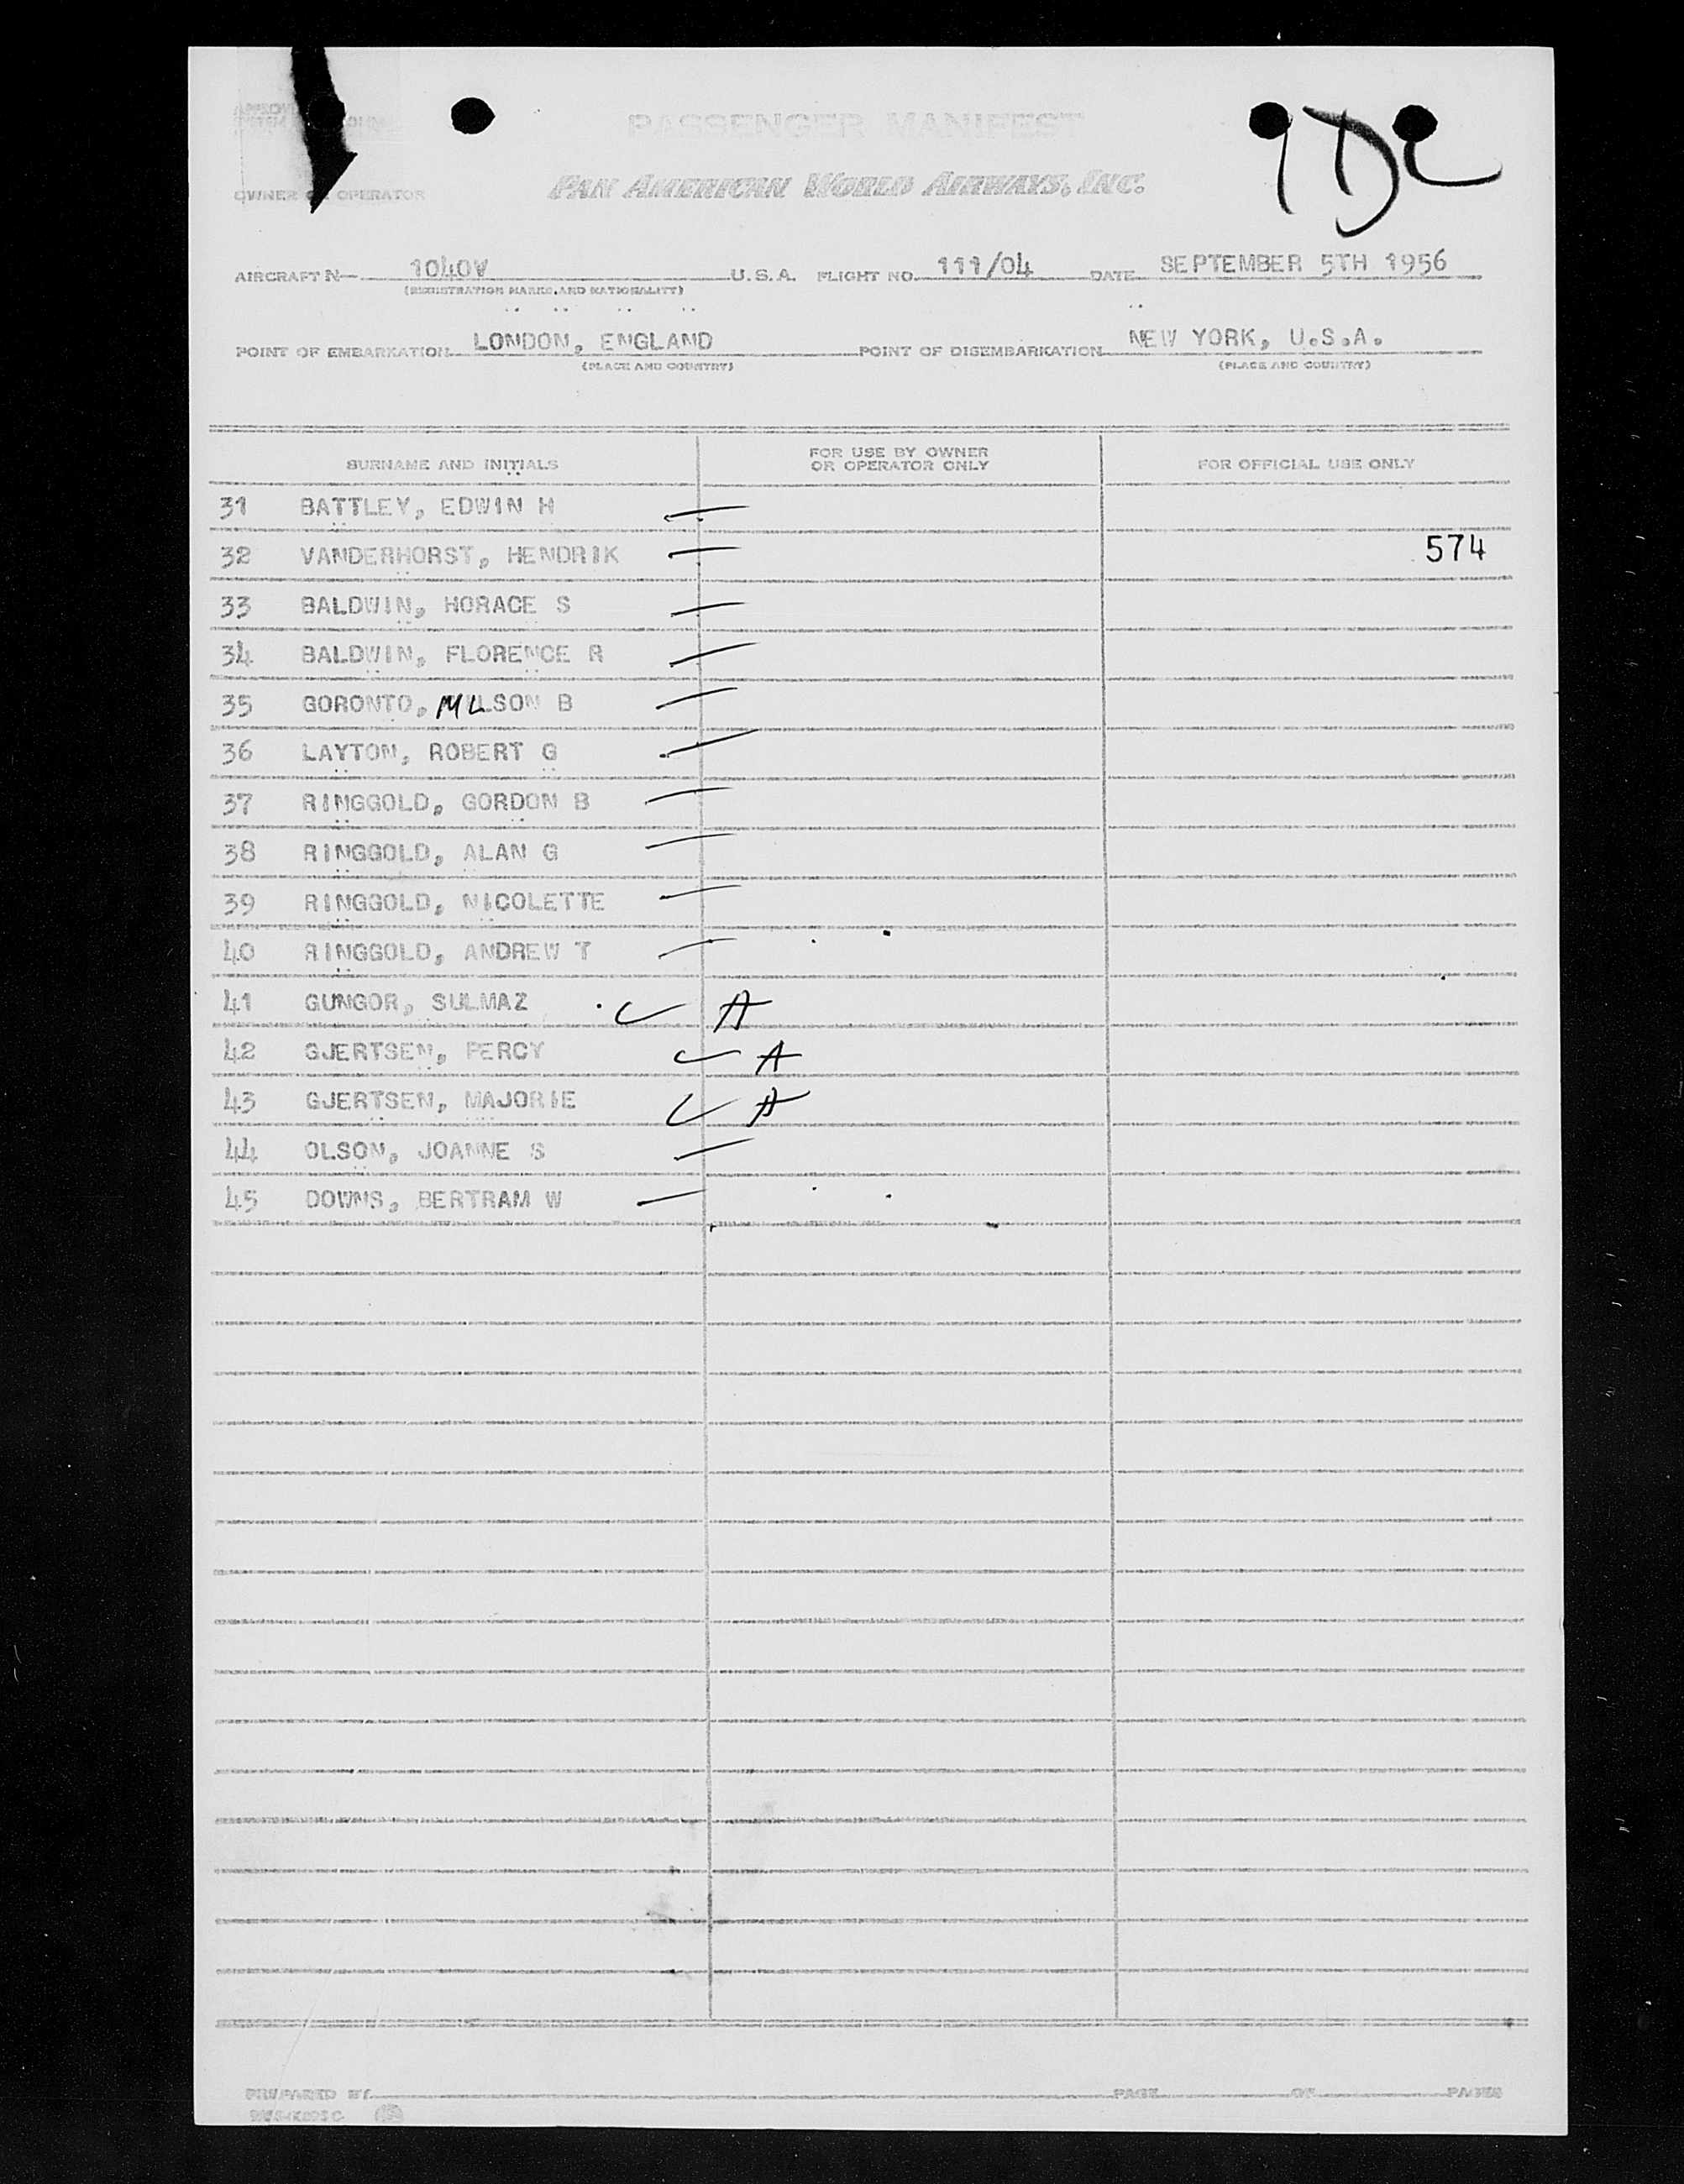 PASSENGER MANIFEST
OWNER OR OPERATOR PAN AMERICAN WORLD AIRWAYS, INC.
AIRCRAFT N— 1040V U.S.A. FLIGHT NO. 111/04 DATE SEPTEMBER 5TH 1956
(REGISTRATION MARKS, AND NATIONALITY)
POINT OF EMBARKATION LONDON, ENGLAND POINT OF DISEMBARKATION NEW YORK, U.S.A.
(PLACE AND COUNTRY) (PLACE AND COUNTRY)
SURNAME AND INITIALS FOR USE BY OWNER OR OPERATOR ONLY FOR OFFICIAL USE ONLY
31 BATTLEY, EDWIN H
32 VANDERHORST, HENDRIK 574
33 BALDWIN, HORACE S
34 BALDWIN, FLORENCE R
35 GORONTO, B
36 LAYTON, ROBERT G
37 RINGGOLD, GORDON B
38 RINGGOLD, ALAN G
39 RINGGOLD, NICOLETTE
40 RINGGOLD, ANDREW T
41 GUNGOR, SULMAZ ✓ A
42 GJERTSEN, PERCY ✓ A
43 GJERTSEN, MAJORIE ✓ A
44 OLSON, JOANNE S
45 DOWNS, BERTRAM W
PREPARED BY PAGE OF PAGES